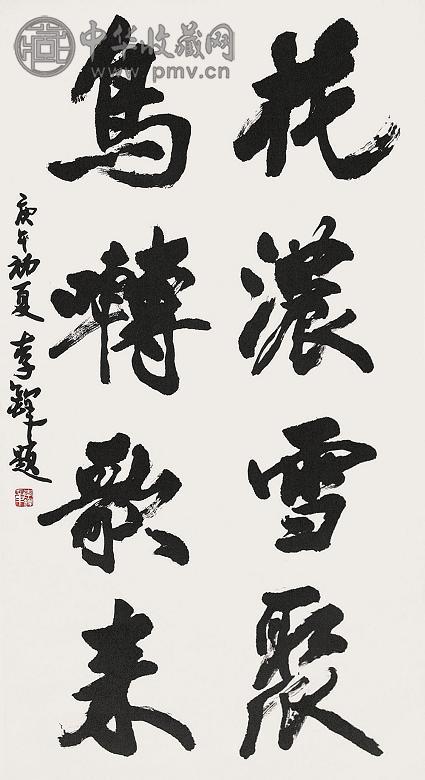 花濃雪聚
鳥囀歌来
庚午初夏 李鐸題
中华收藏网
www.pmv.cn